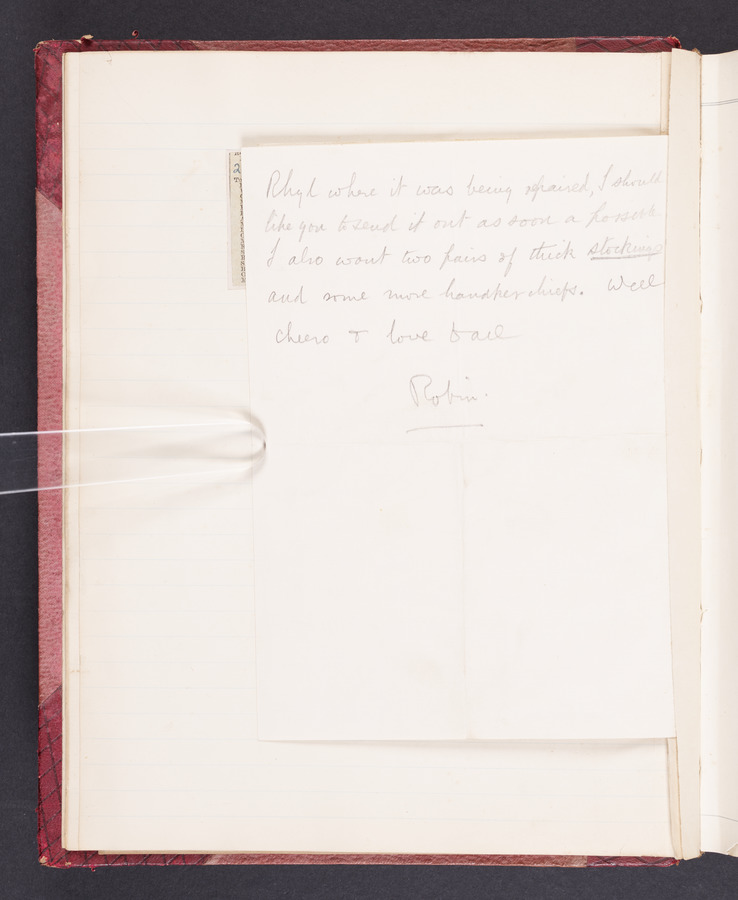 Rhyl where it was being repaired, I should
like you to send it out as soon a possible.
I also want two pairs of thick stockings
and some more handkerchiefs. Well
cheero & love to all
Robin.